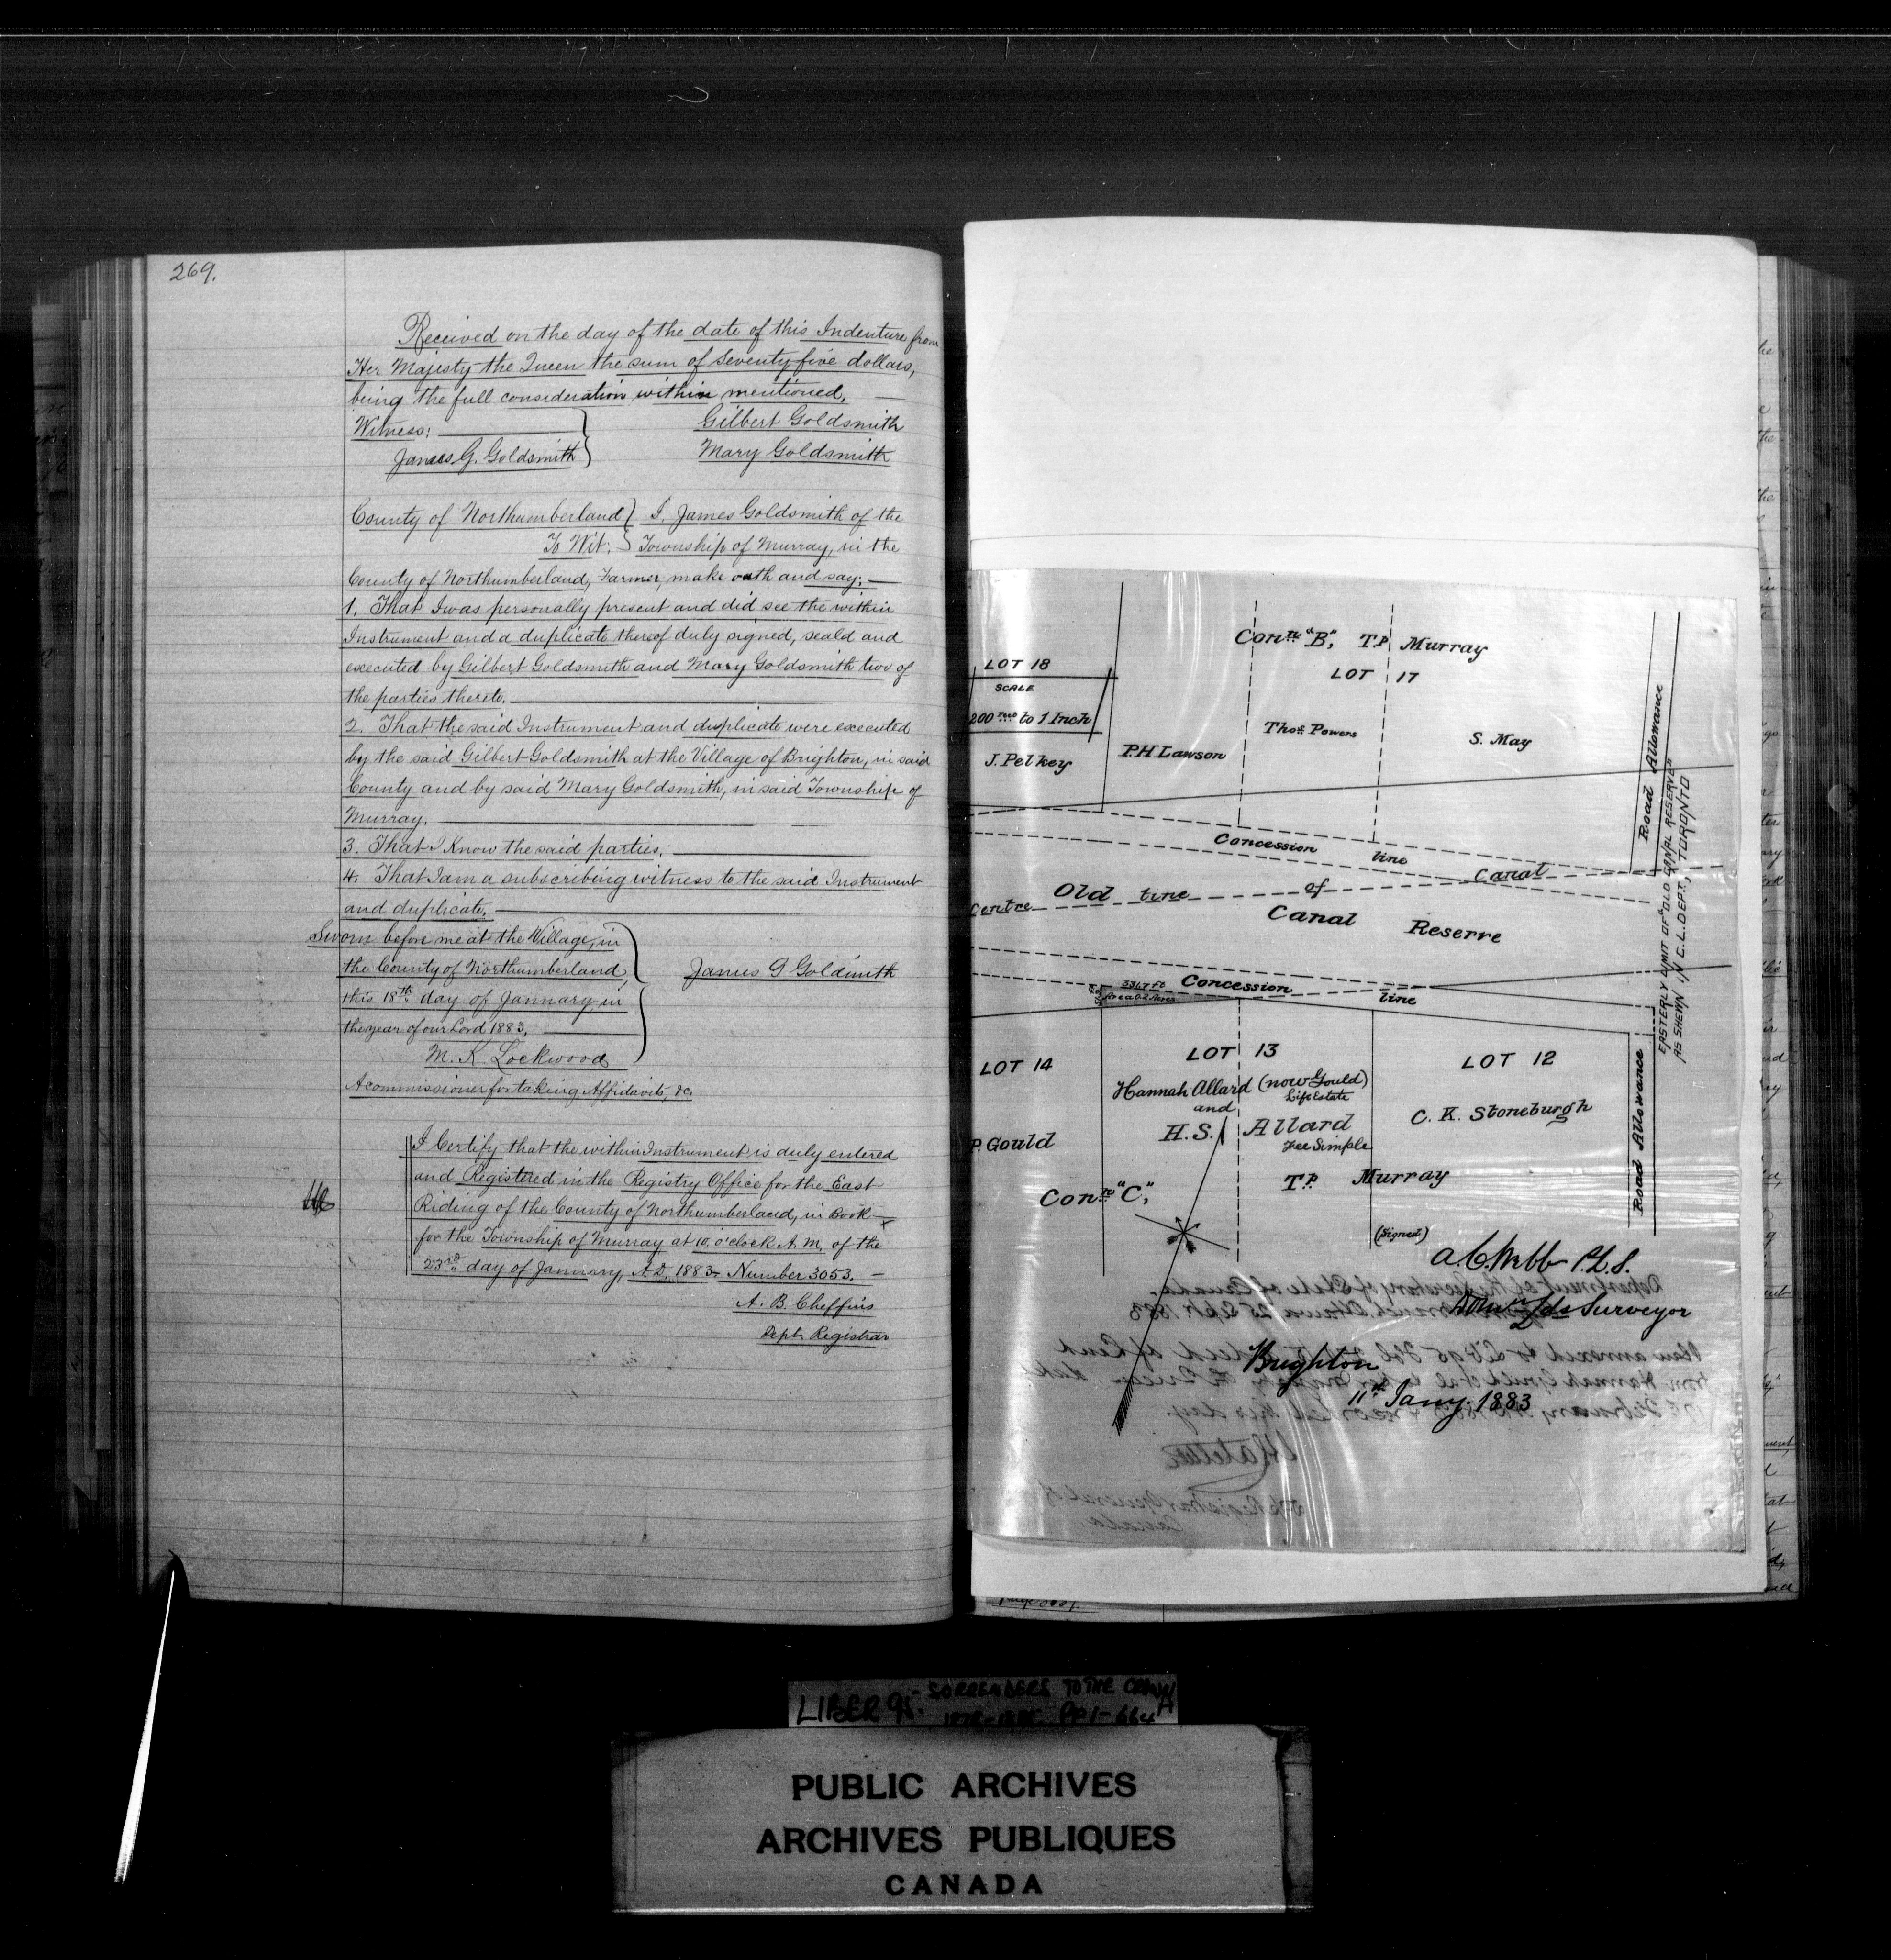 269.
Received on the day of the date of this Indenture from
Her Majesty the Queen the sum of Seventy five dollars,
being the full consideration within mentioned,
Witness:
James G. Goldsmith
Gilbert Goldsmith
Mary Goldsmith
County of Northumberland
To Wit:
I, James Goldsmith of the
Township of Murray, in the
County of Northumberland, Farmer, make oath and say:
1. That I was personally present and did see the within
Instrument and a duplicate thereof duly signed, seald and
executed by Gilbert Goldsmith and Mary Goldsmith two of
the parties thereto.
2. That the said Instrument and duplicate were executed
by the said Gilbert Goldsmith at the Village of Brighton, in said
County and by said Mary Goldsmith, in said Township of
Murray.
3. That I know the said parties.
4. That I am a subscribing witness to the said Instrument
and duplicate.
Sworn before me at the Village, in
the County of Northumberland,
this 18th day of January, in
the year of our Lord 1883.
M. K. Lockwood
A commissioner for taking Affidavits, &c.
James G Goldsmith
I Certify that the within Instrument is duly entered
and Registered in the Registry Office for the East
Riding of the County of Northumberland, in Book
for the Township of Murray at 10. o'clock A.M. of the
23rd day of January, A.D. 1883. Number 3053.
A. B. Cheffins
Dept. Registrar
Con "B", Tp Murray
LOT 18
LOT 17
SCALE
200 feet to 1 Inch
J. Pelkey
P.H Lawson
Thos Powers
S. May
Road Allowance
EASTERLY LIMIT OF "OLD CANAL RESERVE"
AS SHEWN IN C.L. DEPT., TORONTO
Concession line
Centre Old line of Canal
Canal Reserve
334.7 Ft
Area 0.2 Acres
Concession line
LOT 14
LOT 13
LOT 12
Hannah Allard (now Gould)
Life Estate
and
H.S. Allard
Fee Simple
C. K. Stoneburgh
P. Gould
Road Allowance
Con "C",
Tp Murray
(Signed)
A. C. Webb P.L.S.
Surveyor
Brighton
11th Jany. 1883
LIBER 95. SURRENDERS TO THE CROWN
PP 1-664
PUBLIC ARCHIVES
ARCHIVES PUBLIQUES
CANADA